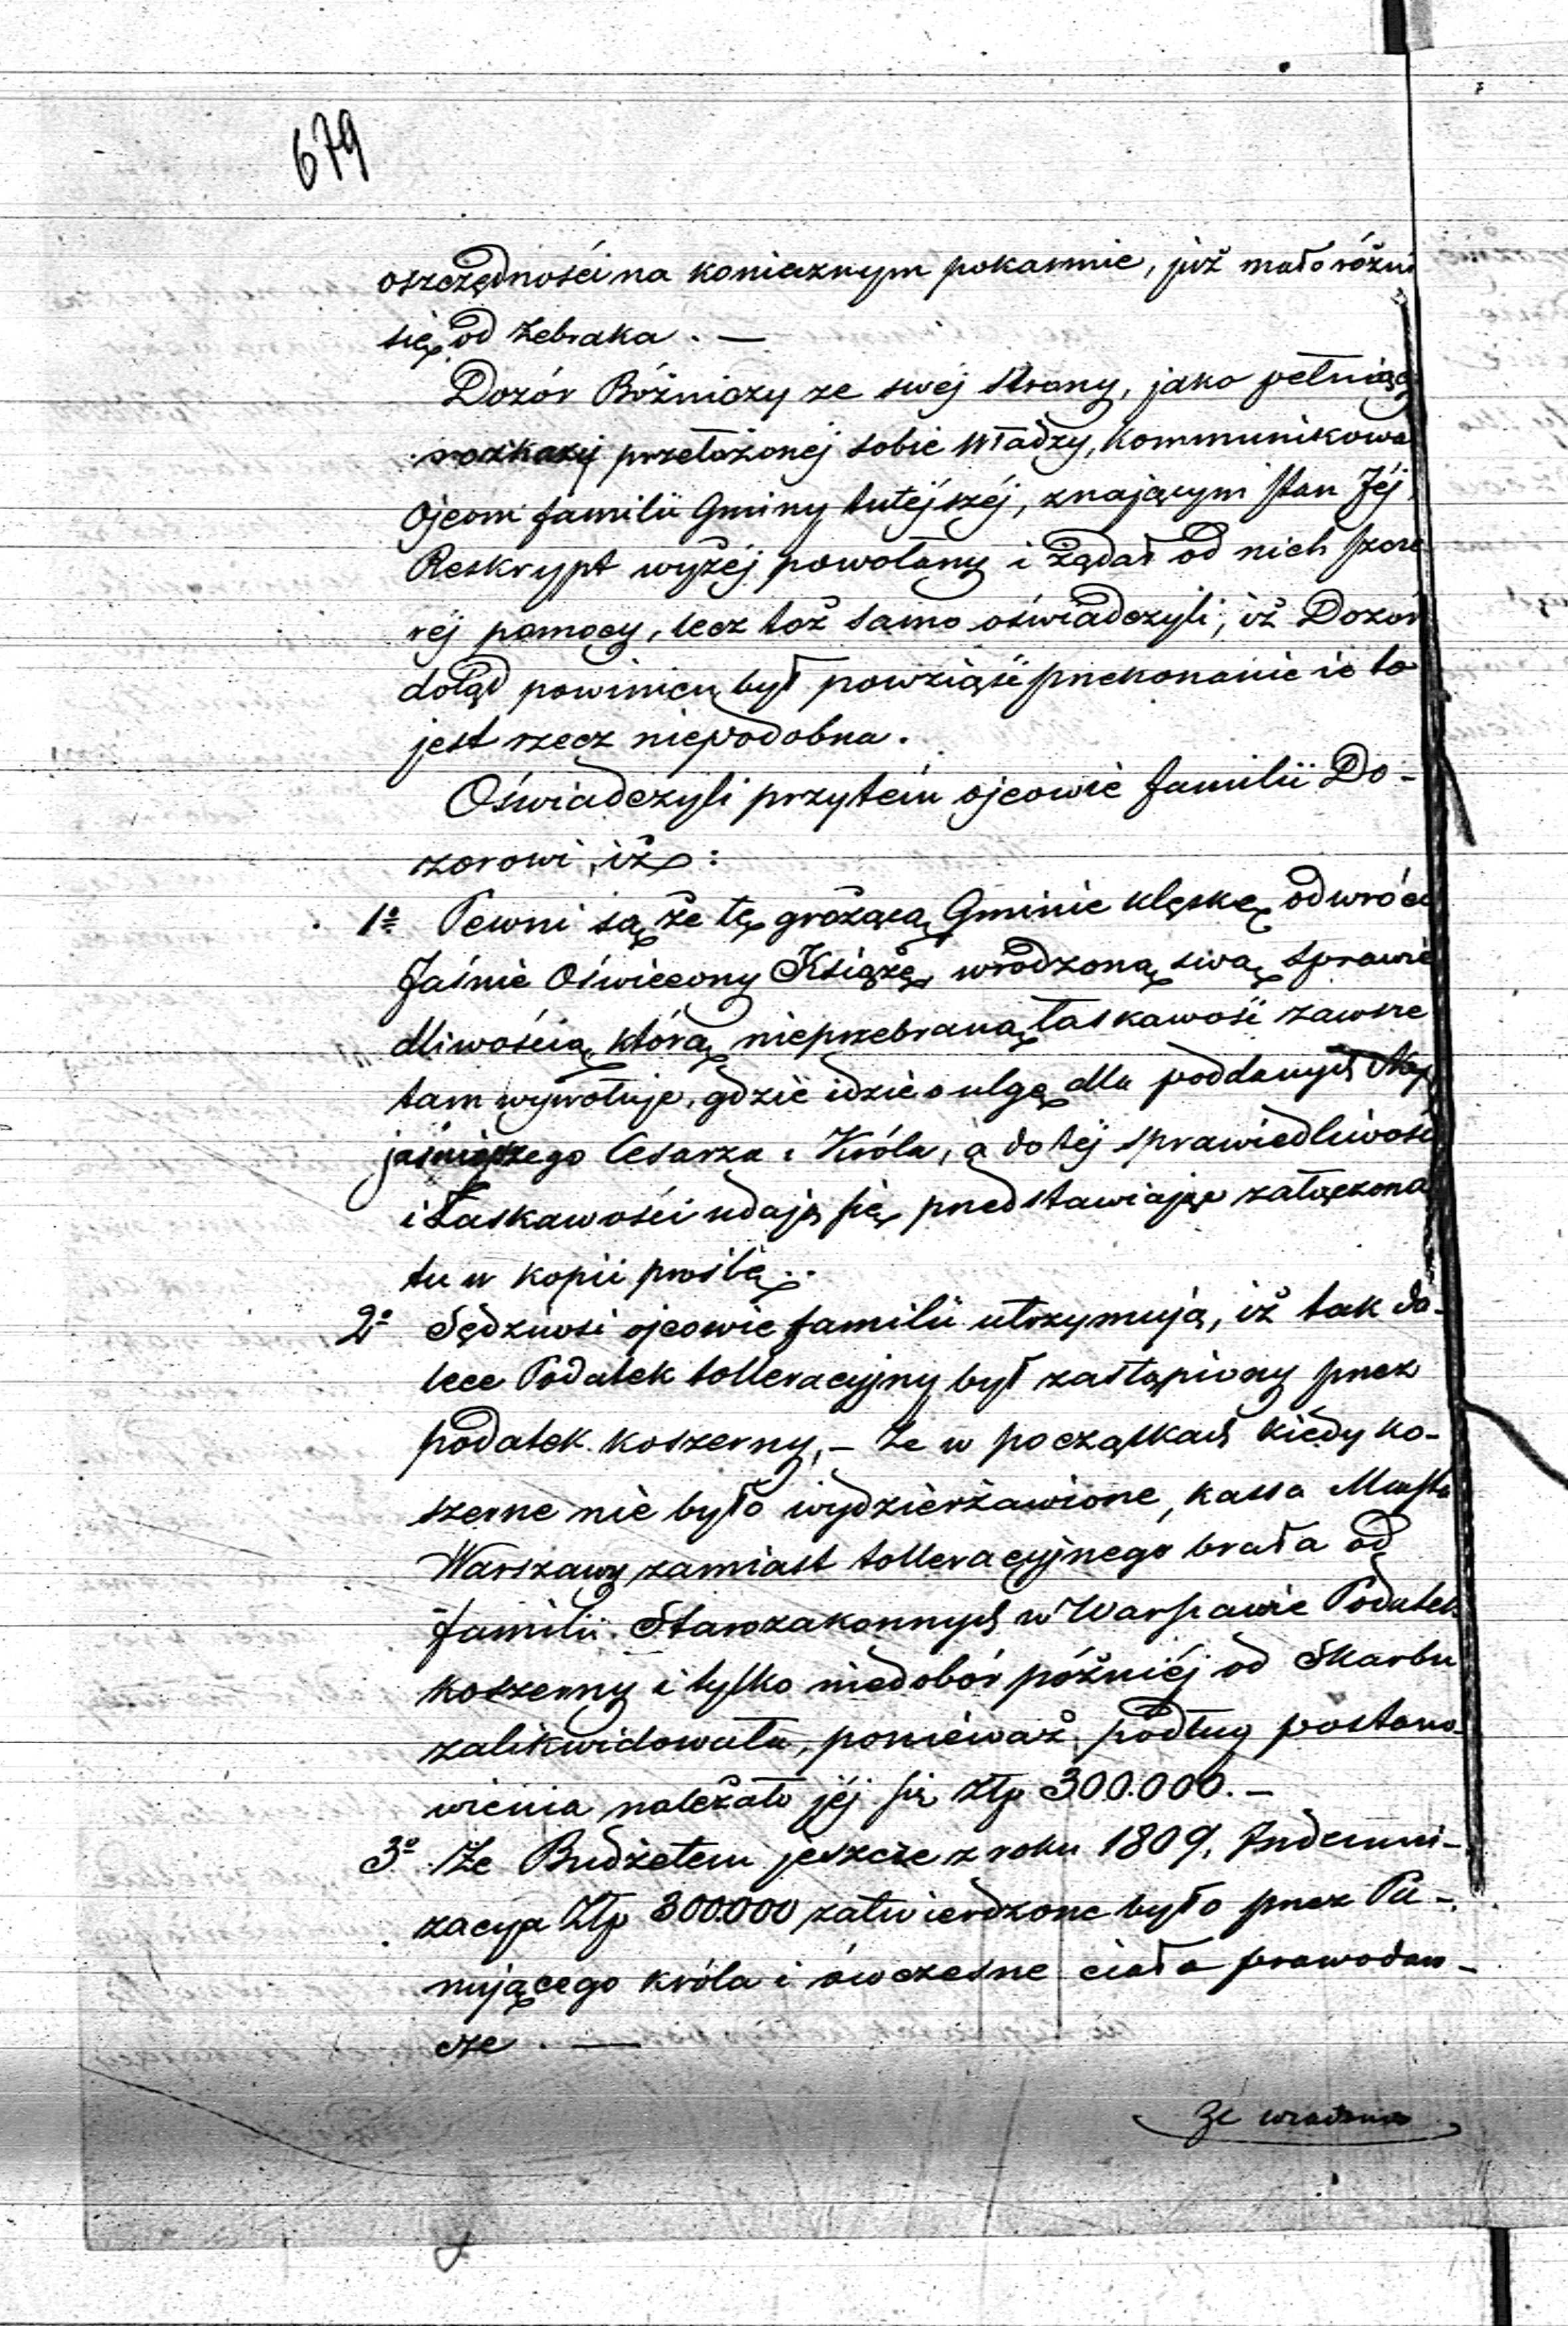 679
oszczędności na koniecznym pokarmie, już mało różni
się od żebraka. —
Dozór Bóżniczy ze swéj strony, jako pełniąc
rozkazy przełożonéj sobie Władzy, kommunikował
Ojcom familii Gminy tutéjszéj, znającym stan Jéj
Reskrypt wyżéj powołany i żądał od nich szcze
réj pomocy, lecz toż samo oświadczyli, iż Dozór
dotąd powinien był powziąść przekonanie że to
jest rzecz niepodobna.
Oświadczyli przytém ojcowie familii Do-
zorowi, iż:
1º Pewni są, że tę grożącą Gminie klęskę odwróci
Jaśnie Oświecony Książę, wrodzoną swą sprawie
dliwością, którą nieprzebrana łaskawość zawsze
tam wywołuje, gdzie idzie o ulgę dla poddanych Naj
jaśniejszego Cesarza i Króla, a do téj sprawiedliwości
i Łaskawości udają się, przedstawiając załączoną
tu w kopii prośbę.
2º Sędziwsi ojcowie familii utrzymują, iż tak da-
lece Podatek tolleracyjny był zastąpiony przez
podatek koszerny, — że w początkach kiedy ko-
szerne nie było wydzierżawione, kassa Miasta
Warszawy zamiast tolleracyjnego brała od
familii Starozakonnych w Warszawie Podatek
koszerny i tylko niedobór późniéj od Skarbu
zalikwidowała, ponieważ podług postano-
wienia należało jéj się Złp 300.000. —
3º Że Budżetem jeszcze z roku 1809, Indemni-
zacya Złp 300.000 zatwierdzone było przez Pa-
nującego króla i ówczesne ciała prawodaw-
cze. —
że